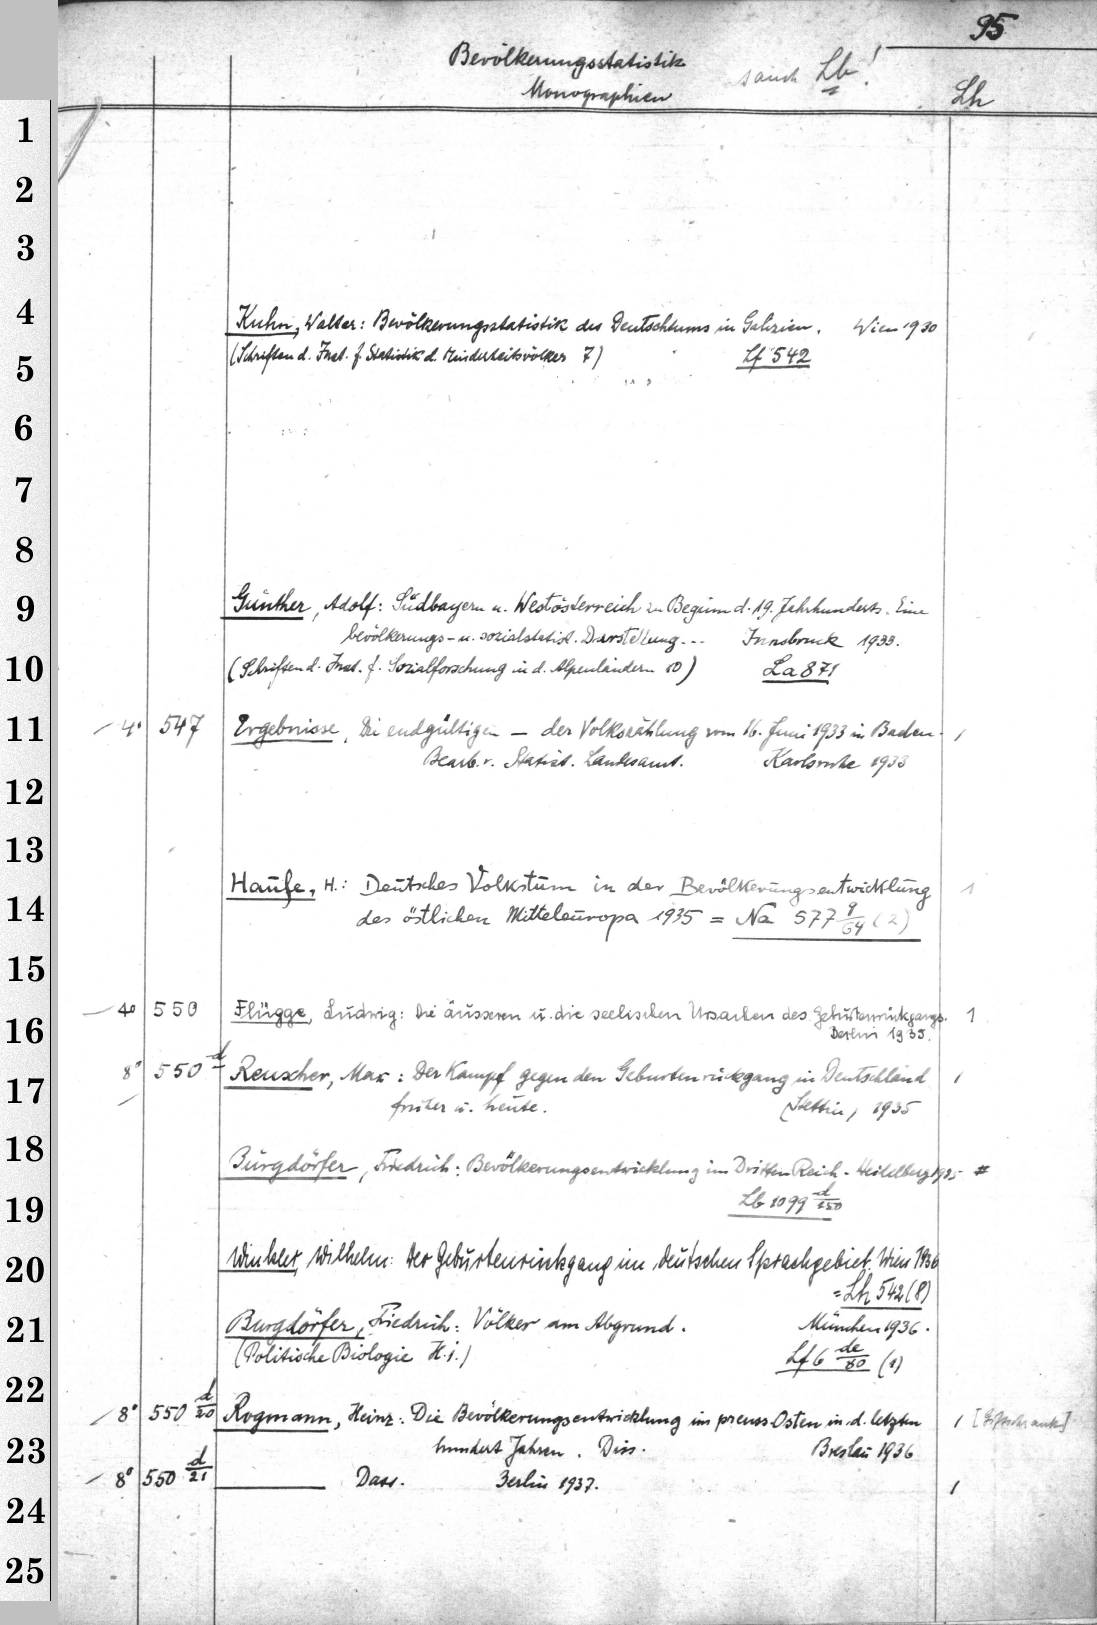 95
Bevölkerungsstatistik
s. auch Lb!
Monographien
Lh
1
2
3
4 Kuhn, Walter: Bevölkerungsstatistik des Deutschtums in Galizien. Wien 1930
5 (Schriften d. Inst. f. Statistik d. Minderheitsvölker 7) Lf 542
6
7
8
9 Günther, Adolf: Südbayern u. Westösterreich zu Beginn d. 19. Jahrhunderts. Eine
bevölkerungs- u. sozialstatist. Darstellung... Innsbruck 1933.
10 (Schriften d. Inst. f. Sozialforschung in d. Alpenländern 10) La 871
11 4° 547 Ergebnisse, Die endgültigen — der Volkszählung vom 16. Juni 1933 in Baden. 1
Bearb. v. Statist. Landesamt. Karlsruhe 1933
12
13
Haufe, H.: Deutsches Volkstum in der Bevölkerungsentwicklung 1
14 des östlichen Mitteleuropa 1935 = Na 577 9/64 (2)
15
16 4° 550 Flügge, Ludwig: Die äusseren u. die seelischen Ursachen des Geburtenrückgangs. 1
Berlin 1935.
17 8° 550 d Reuscher, Max: Der Kampf gegen den Geburtenrückgang in Deutschland 1
früher u. heute. (Stettin) 1935
18 Burgdörfer, Friedrich: Bevölkerungsentwicklung im Dritten Reich. Heidelberg 1935 #
19 Lb 1099 d/150
20 Winkler, Wilhelm: Der Geburtenrückgang im deutschen Sprachgebiet. Wien 1936
= Lh 542 (8)
21 Burgdörfer, Friedrich: Völker am Abgrund. München 1936.
(Politische Biologie H. 1.) Lf 6 de/80 (1)
22 8° 550 d/20 Rogmann, Heinz: Die Bevölkerungsentwicklung im preuss. Osten in d. letzten 1 [Giftschrank]
23 hundert Jahren. Diss. Breslau 1936
8° 550 d/21 ——— Dass. Berlin 1937. 1
24
25